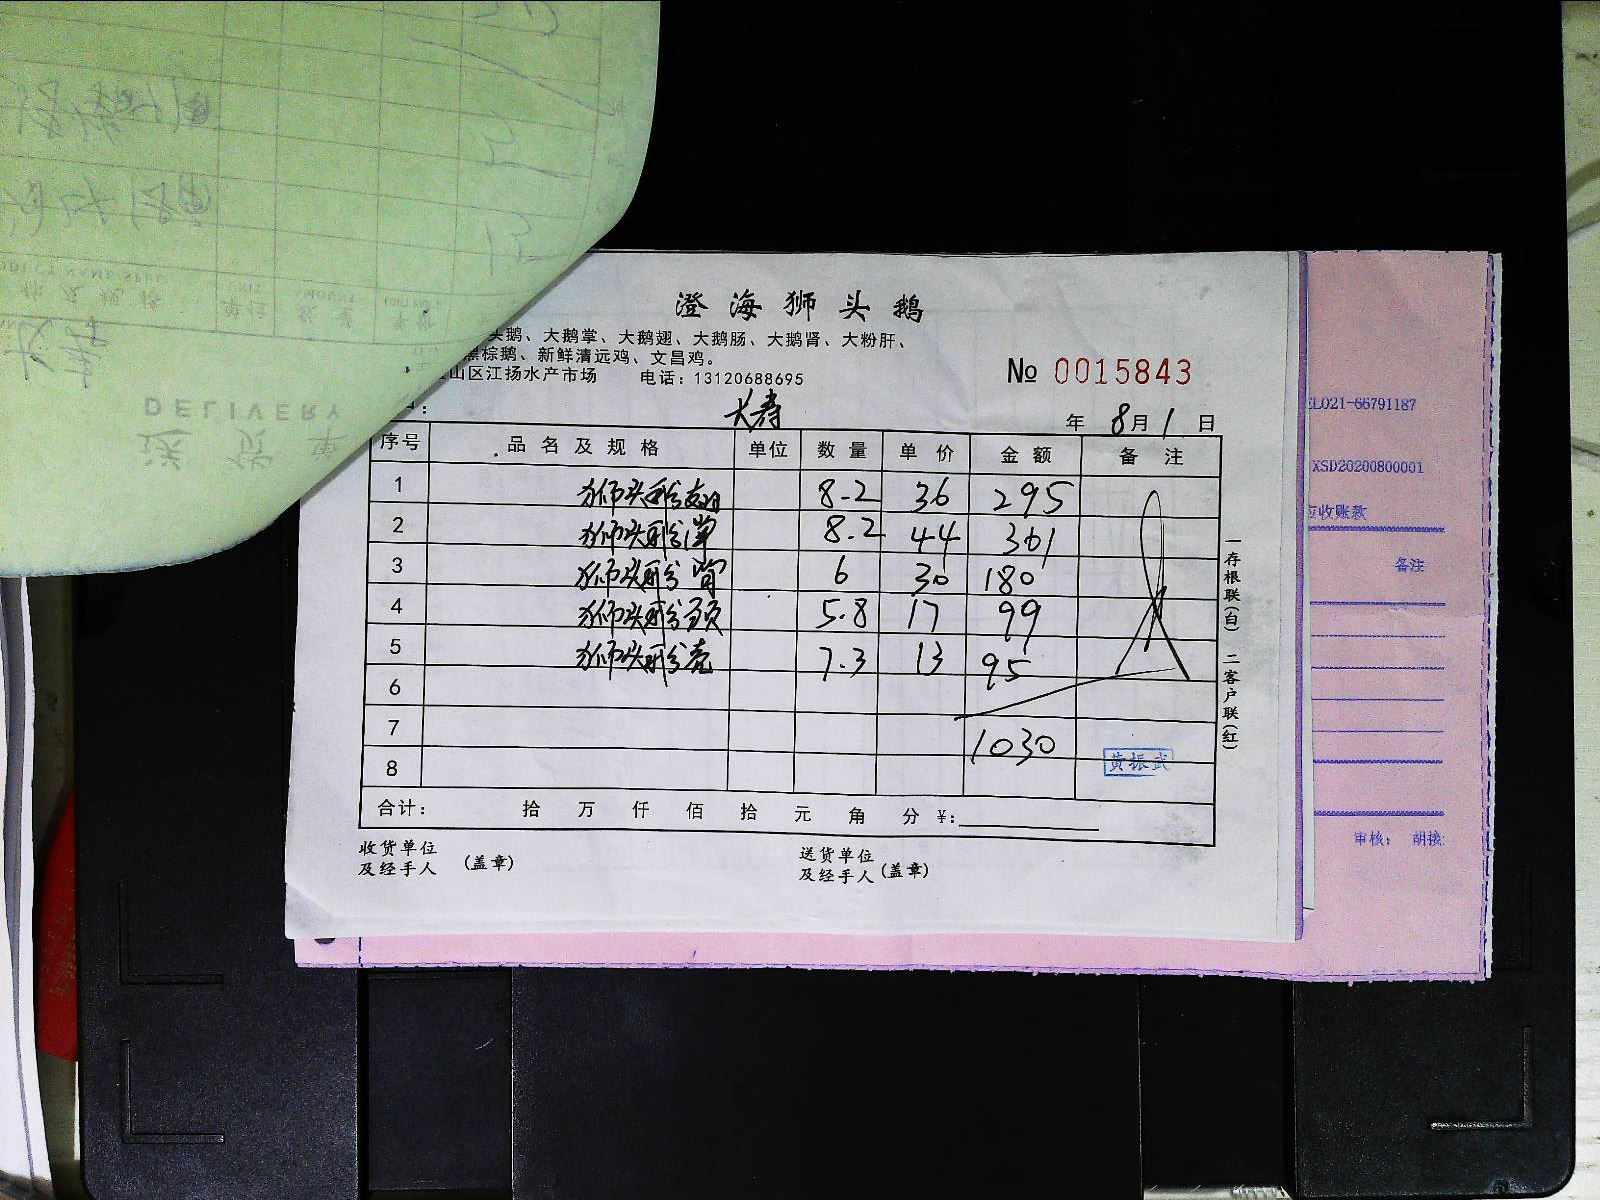 澄海狮头鹅
头鹅、大鹅掌、大鹅翅、大鹅肠、大鹅肾、大粉肝、
黑棕鹅、新鲜清远鸡、文昌鸡。
山区江扬水产市场 电话：13120688695
№ 0015843
大寿
年 8月1日
序号 品名及规格 单位 数量 单价 金额 备注
1 狮头鹅翅 8.2 36 295
2 狮头鹅掌 8.2 44 361
3 狮头鹅肾 6 30 180
4 狮头鹅头 5.8 17 99
5 狮头鹅壳 7.3 13 95
6
7 1030
8 黄振武
合计： 拾 万 仟 佰 拾 元 角 分 ¥：
收货单位
及经手人 (盖章)
送货单位
及经手人 (盖章)
一存根联(白) 二客户联(红)
EL021-66791187
XSD20200800001
应收账款
备注
审核： 胡接
DELIVERY
送货单
大寿